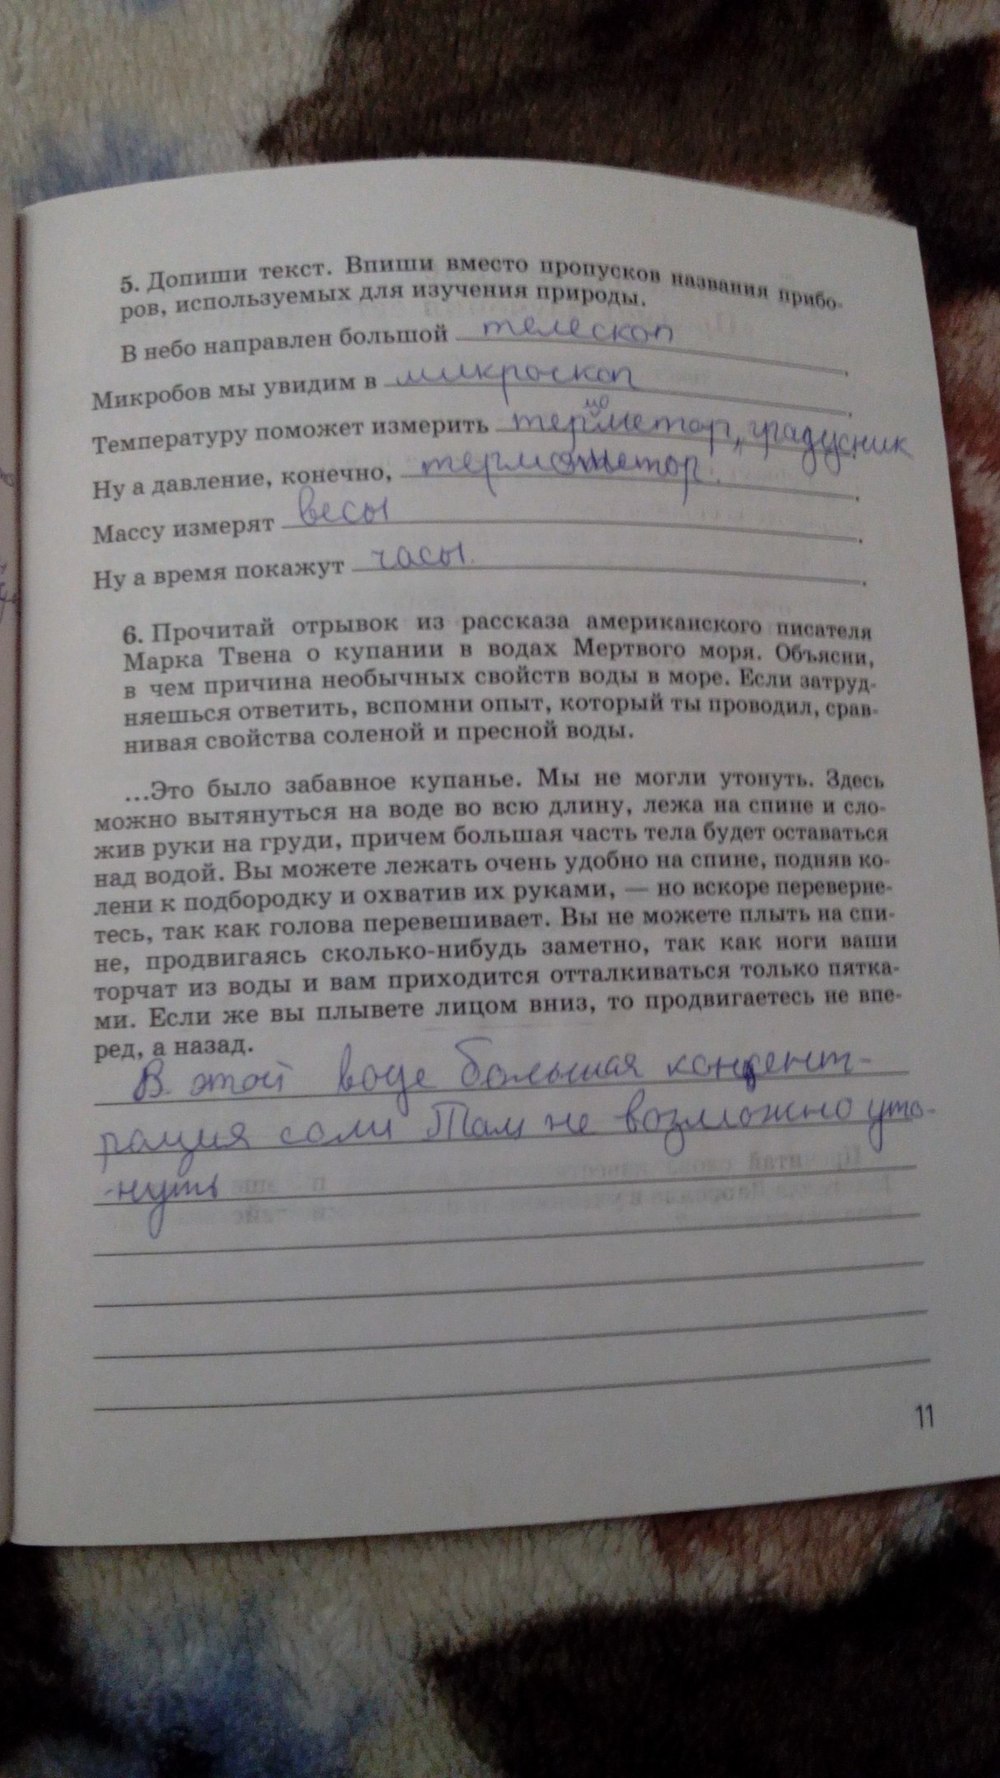 5. Допиши текст. Впиши вместо пропусков названия прибо-
ров, используемых для изучения природы.
В небо направлен большой телескоп.
Микробов мы увидим в микроскоп.
Температуру поможет измерить термометор, градусник.
Ну а давление, конечно, термометор.
Массу измерят весы.
Ну а время покажут часы.
6. Прочитай отрывок из рассказа американского писателя
Марка Твена о купании в водах Мертвого моря. Объясни,
в чем причина необычных свойств воды в море. Если затруд-
няешься ответить, вспомни опыт, который ты проводил, срав-
нивая свойства соленой и пресной воды.
...Это было забавное купанье. Мы не могли утонуть. Здесь
можно вытянуться на воде во всю длину, лежа на спине и сло-
жив руки на груди, причем большая часть тела будет оставаться
над водой. Вы можете лежать очень удобно на спине, подняв ко-
лени к подбородку и охватив их руками, — но вскоре переверне-
тесь, так как голова перевешивает. Вы не можете плыть на спи-
не, продвигаясь сколько-нибудь заметно, так как ноги ваши
торчат из воды и вам приходится отталкиваться только пятка-
ми. Если же вы плывете лицом вниз, то продвигаетесь не впе-
ред, а назад.
В этой воде большая концент-
рация соли Там не возможно уто-
-нуть
11